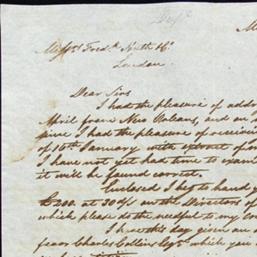 Messrs Fredk Huth & Co
London
Dear Sirs
I had the pleasure of addre
April from New Orleans, and on
since I had the pleasure of receivin
of 16th January with extract of
I have not yet had time to exam
it will be found correct.
Enclosed I beg to hand y
£200. at 30 d/s on the Directors of
which please do the needful to my
I have this day given an
favor Charles Collins Esqr. which you